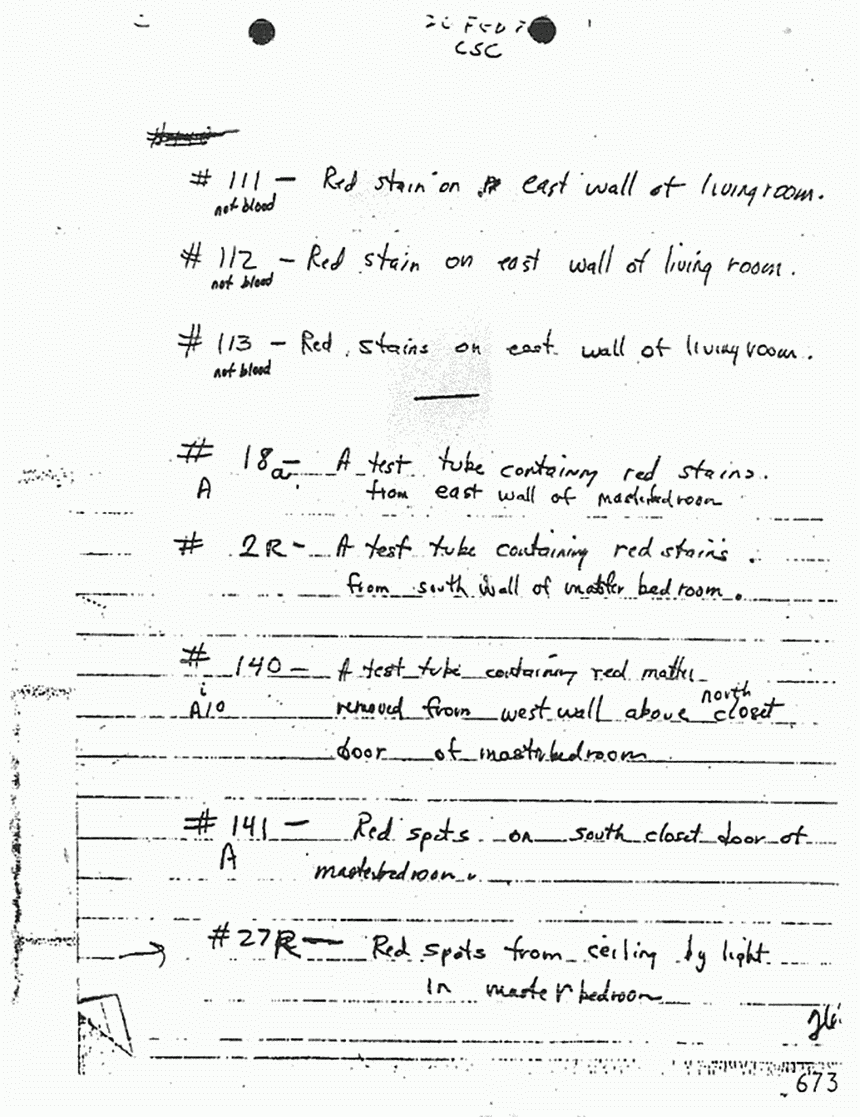 CSC
# 111 - Red stain on east wall of living room.
not blood
# 112 - Red stain on east wall of living room.
not blood
# 113 - Red stains on east wall of living room.
not blood
# 18a - A test tube containing red stains.
A from east wall of master bedroom
# 2R - A test tube containing red stains.
from south wall of master bedroom.
# 140 - A test tube containing red matter
north
removed from west wall above closet
door of master bedroom
# 141 - Red spots on south closet door of
A master bedroom.
→ #27R - Red spots from ceiling by light
in master bedroom
673